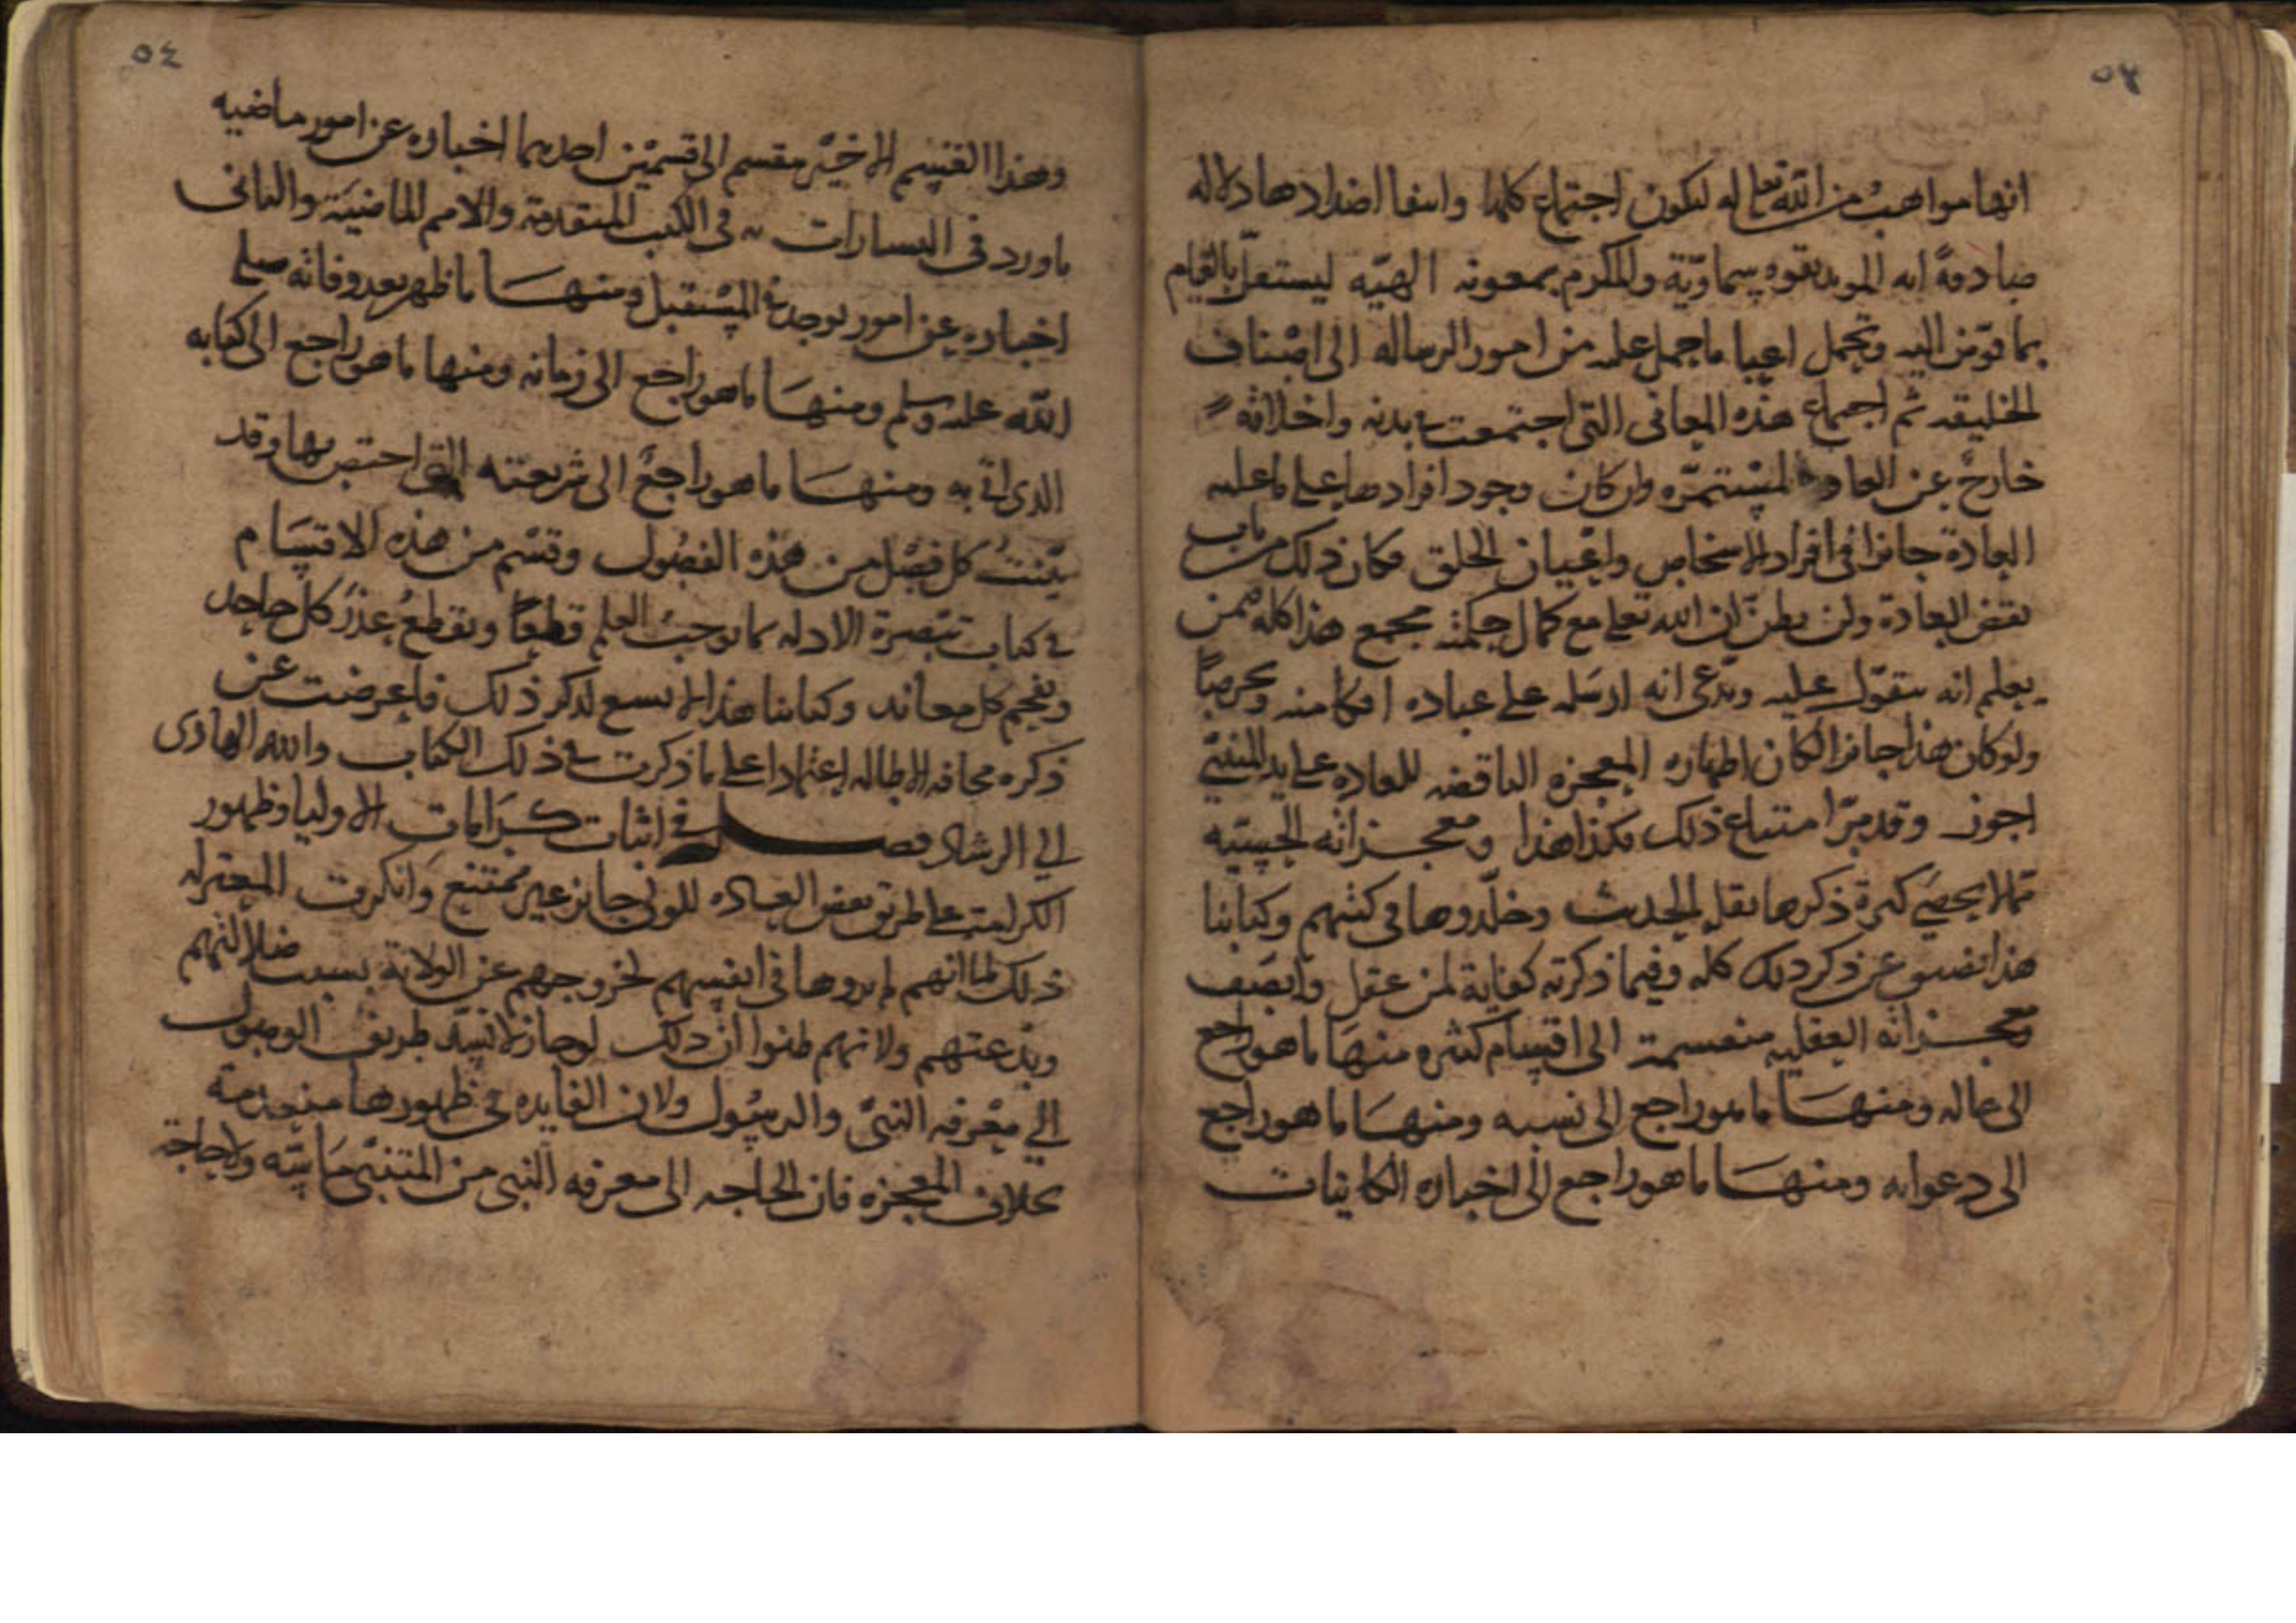 ٥٣
انها مواهب من الله تعالى له لتكون اجتماع كلها وانتفا اضدادها دلالة
صادقة انه المويد بقوه سماوية والمكرم بمعونه الهيه ليستقل بالقيام
بما فوض اليه وتحمل اعبا ما حمل عليه من امور الرساله الى اصناف
الخليقه ثم اجتماع هذه المعانى التى اجتمعت فى بدنه واخلاقه
خارج عن العادة المستمره وان كان وجود افرادها على ما عليه
العادة جائزا فى افراد الاشخاص واعيان الخلق فكان ذلك من باب
نقض العادة ولن يظن ان الله تعلى مع كمال حكمته يجمع هذا كله فيمن
يعلم انه يتقول عليه ويدعى انه ارسله على عباده افكا منه وتخرصا
ولو كان هذا جائزا لكان اظهاره المعجزه الناقضه للعاده على يد المتنبئ
اجوز وقد مر امتناع ذلك فكذا هذا ومعجزاته الحسيه
مما لا يحصى كثرة ذكرها نقله الحديث وخلدوها فى كتبهم وكتابنا
هذا يضيق عن ذكر ذلك كله وفيما ذكرته كفاية لمن عقل وانصف
ومعجزاته العقليه منقسمة الى اقسام كثيره منها ما هو راجع
الى حاله ومنها ما هو راجع الى نسبه ومنها ما هو راجع
الى دعواه ومنها ما هو راجع الى اخباره الكائنات
٥٤
وهذا القسم الاخير منقسم الى قسمين احدهما اخباره عن امور ماضيه
ما ورد فى البشارات به فى الكتب المتقدمة والامم الماضية والثانى
اخباره عن امور توجد فى المستقبل ومنها ما ظهر بعد وفاته صلى
الله عليه وسلم ومنها ما هو راجع الى زمانه ومنها ما هو راجع الى كتابه
الذى اتى به ومنها ما هو راجع الى شريعته التى اختص بها وقد
بينت كل فصل من هذه الفصول وقسم من هذه الاقسام
فى كتاب تبصرة الادله بما يوجب العلم قطعا ويقطع عذر كل جاحد
ويفحم كل معاند وكتابنا هذا لا يسع لذكر ذلك فاعرضت عن
ذكره مخافه الاطاله اعتمادا على ما ذكرت فى ذلك الكتاب والله الهادى
الى الرشاد فصل فى اثبات كرامات الاوليا وظهور
الكرامة على طريق نقض العاده للولى جائز غير ممتنع وانكرت المعتزله
ذلك لما انهم لم يروها فى انفسهم لخروجهم عن الولاية بسبب ضلالتهم
وبدعتهم ولانهم ظنوا ان ذلك لو جاز لانسد طريق الوصول
الى معرفه النبى والرسول ولان الفايده فى ظهورها منعدمة
بخلاف المعجزه فان الحاجه الى معرفه النبى من المتنبى ماسه ولا حاجة